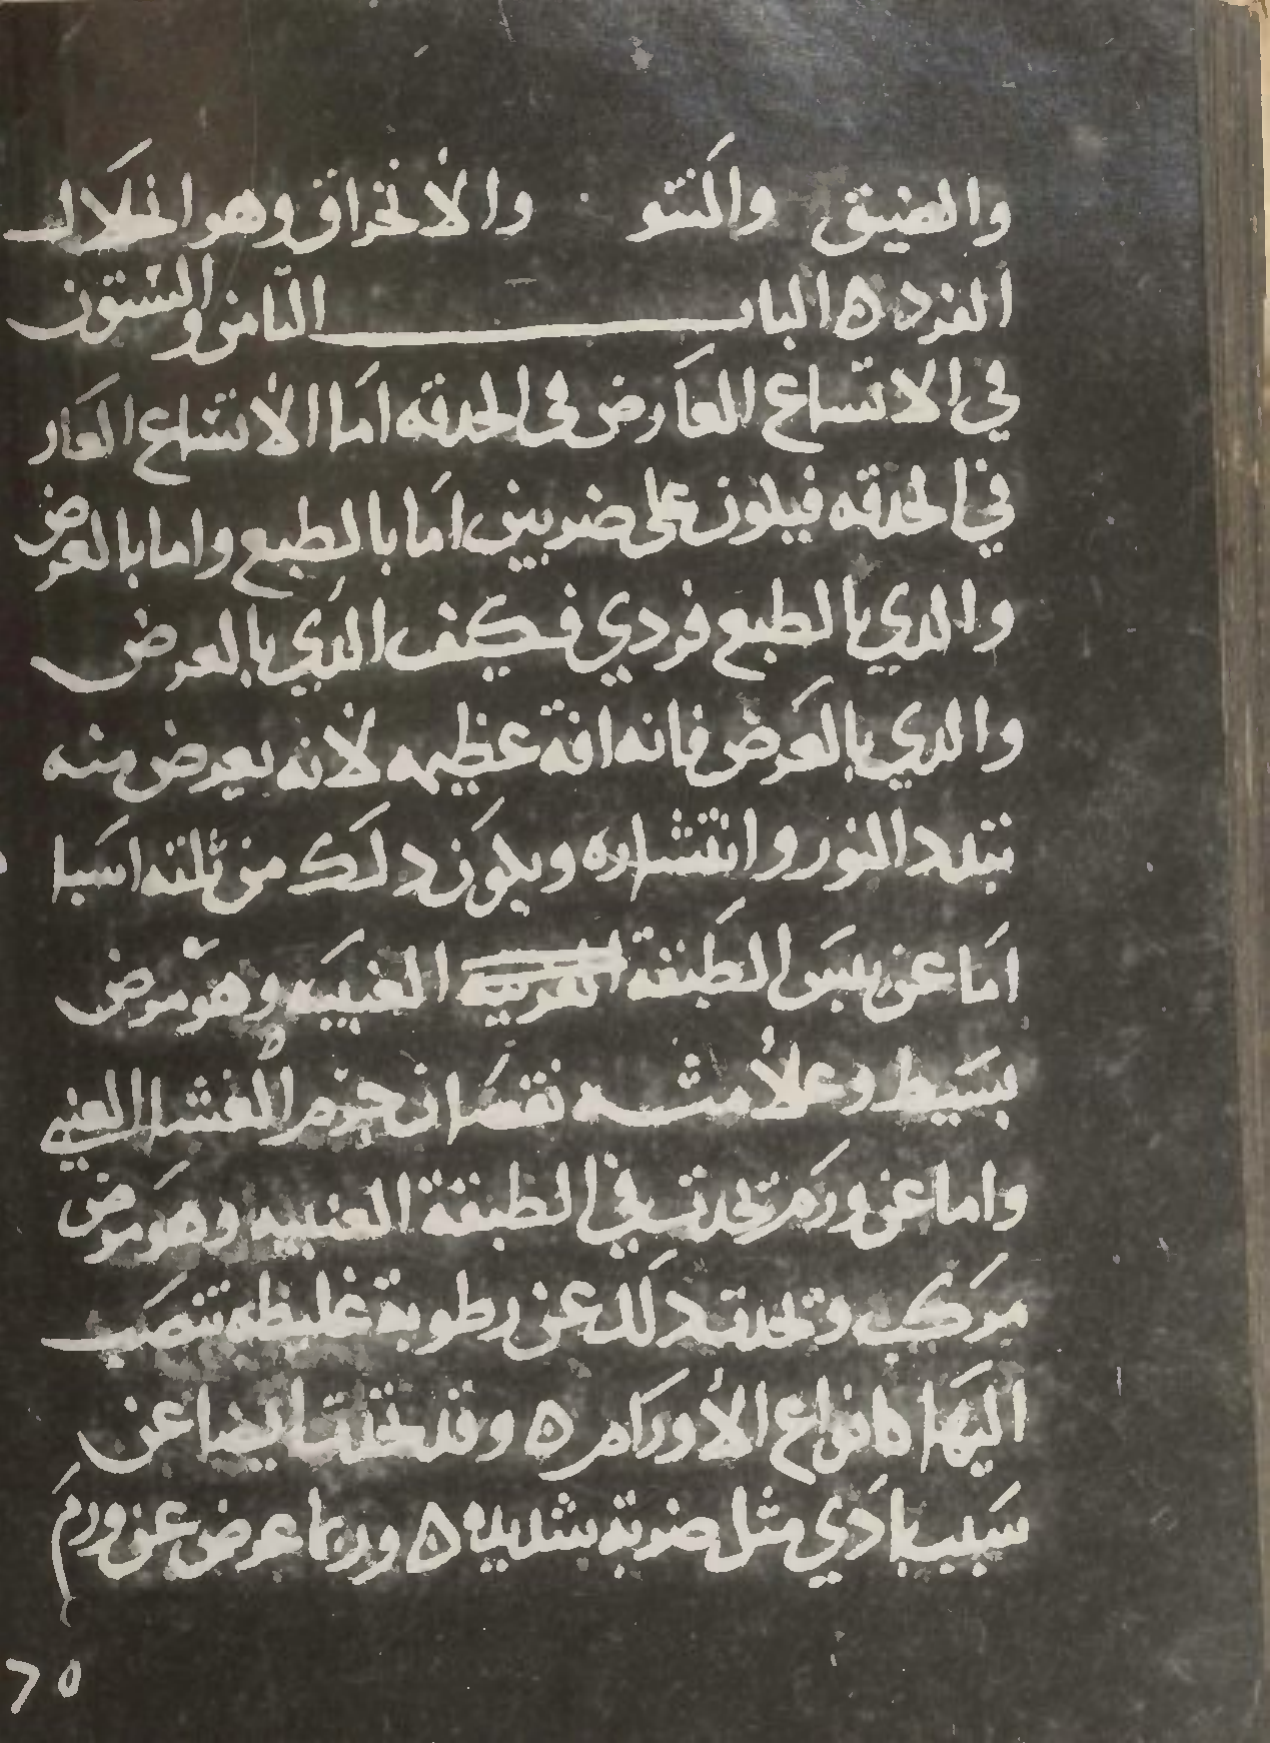 والضيق والنتو والانخراق وهو انحلال
الفرد ه الباب الثامن والستون
في الاتساع العارض في الحدقه اما الاتساع العار
في الحدقه فيكون على ضربين اما بالطبع واما بالعرض
والدي بالطبع فردي فكيف الدي بالعرض
والدي بالعرض فانه افة عظيمه لانه يعرض منه
تبدد النور وانتشاره ويكون دلك من ثلثه اسبا
اما عن يبس الطبقة القرنيه العنبيه وهو مرض
بسيط وعلامته نقصان جرم الغشا العنبي
واما عن ورم تحدث في الطبقة العنبيه وهو مرض
مركب وتحدث دلك عن رطوبة غليظه تنصب
اليها ه انواع الاورام ه وقد تحدث ايضا عن
سبب بادي مثل ضربة شديده ه وربما عرض عن ورم
٦٥